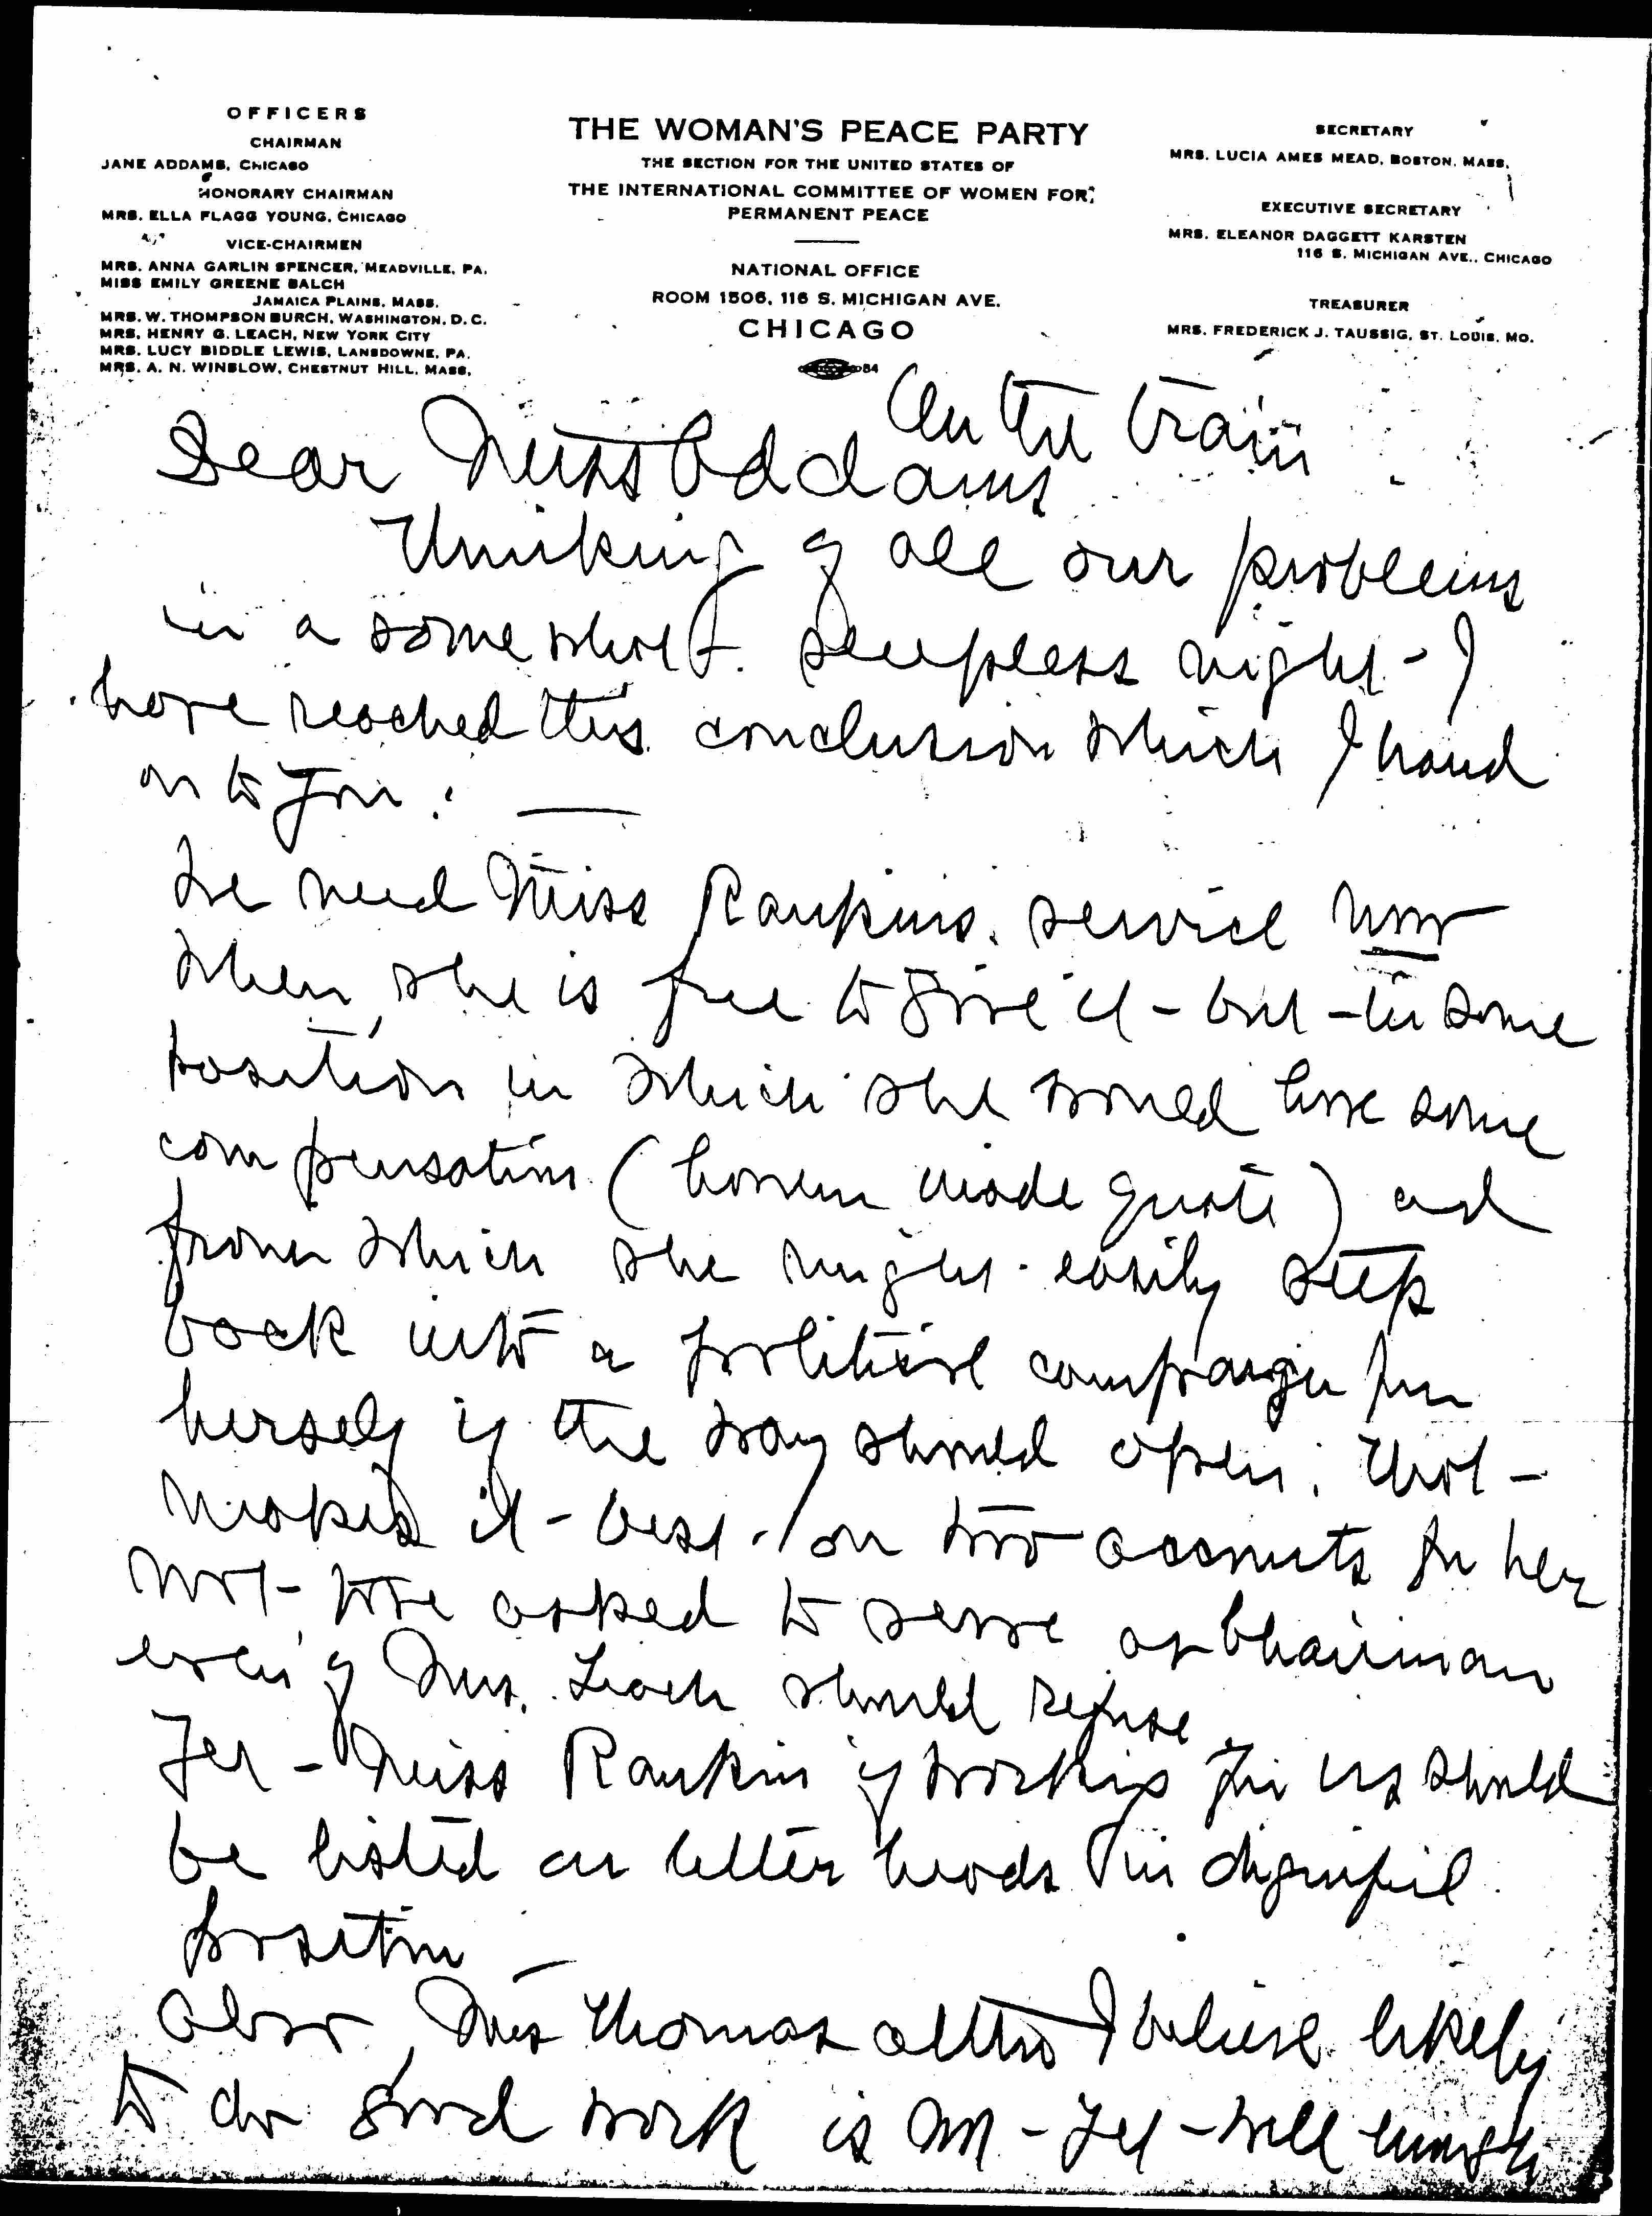 OFFICERS
CHAIRMAN
JANE ADDAMS, CHICAGO
HONORARY CHAIRMAN
MRS. ELLA FLAGG YOUNG, CHICAGO
VICE-CHAIRMEN
MRS. ANNA GARLIN SPENCER, MEADVILLE, PA.
MISS EMILY GREENE BALCH
JAMAICA PLAINS, MASS.
MRS. W. THOMPSON BURCH, WASHINGTON, D. C.
MRS. HENRY G. LEACH, NEW YORK CITY
MRS. LUCY BIDDLE LEWIS, LANSDOWNE, PA.
MRS. A. N. WINSLOW, CHESTNUT HILL, MASS.
THE WOMAN'S PEACE PARTY
THE SECTION FOR THE UNITED STATES OF
THE INTERNATIONAL COMMITTEE OF WOMEN FOR
PERMANENT PEACE
NATIONAL OFFICE
ROOM 1506, 116 S. MICHIGAN AVE.
CHICAGO
84
SECRETARY
MRS. LUCIA AMES MEAD, BOSTON, MASS.
EXECUTIVE SECRETARY
MRS. ELEANOR DAGGETT KARSTEN
116 S. MICHIGAN AVE., CHICAGO
TREASURER
MRS. FREDERICK J. TAUSSIG, ST. LOUIS, MO.
On the train
Dear Miss Addams
Thinking of all our problems
in a somewhat sleepless night - I
have reached this conclusion which I hand
on to you : —
We need Miss Rankins service now
when she is free to give it - but - in some
position in which she would have some
compensation ( ) and
from which she might easily step
back into a political campaign for
herself if the way should open. That -
makes it - best - on two accounts for her
not - to be asked to serve as Chairman
even if Mrs. Leach should refuse
Yet - Miss Rankin if working for us should
be listed on letter heads in dignified
position -
Also Mrs Thomas altho I believe likely
to do good work is not - yet - well enough